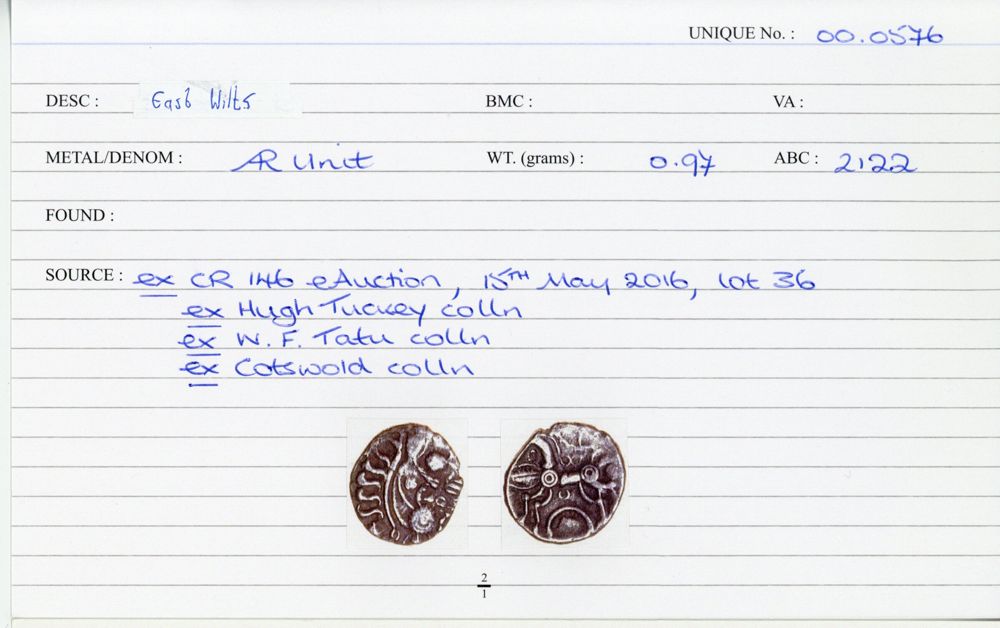 UNIQUE No. : 00.0576
DESC : East Wilts BMC : VA :
METAL/DENOM : AR Unit WT. (grams) : 0.97 ABC : 2122
FOUND :
SOURCE : ex CR 146 eAuction, 15TH May 2016, lot 36
ex Hugh Tuckey colln
ex W. F. Tatu colln
ex Cotswold colln
2
1